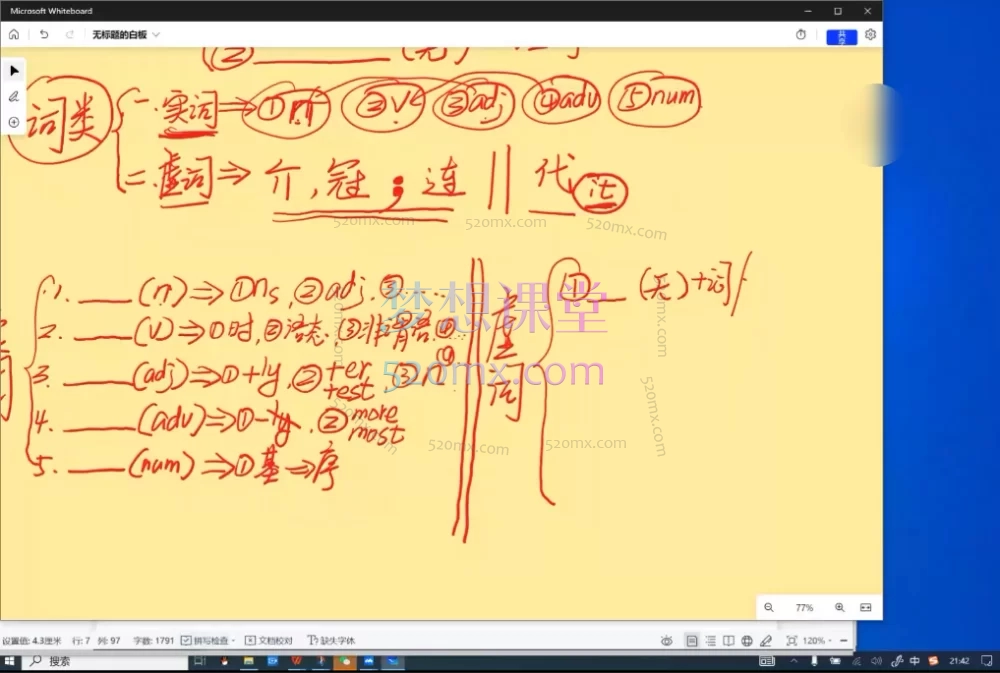 Microsoft Whiteboard
无标题的白板
共享
② ____ (无)
词类
一.实词⇒①n ②v ③adj ④adv ⑤num
二.虚词⇒介,冠;连 || 代 it
520mx.com 520mx.com 520mx.com
1. ____(n)⇒①ns,②adj.③……
①__(无)+词
梦想课堂
2. ____(v)⇒①时,②语态.③非谓语.④
520mx.com
3. ____(adj)⇒①+ly,②+er +est,③
520mx.com
4. ____(adv)⇒①-ly.②more most
520mx.com 520mx.com 520mx.com
5. ____(num)⇒①基→序
虚词
77%
设置值: 4.3厘米 行: 7 列: 97 字数: 1791 拼写检查 文档校对 缺失字体 120%
搜索
中
21:42